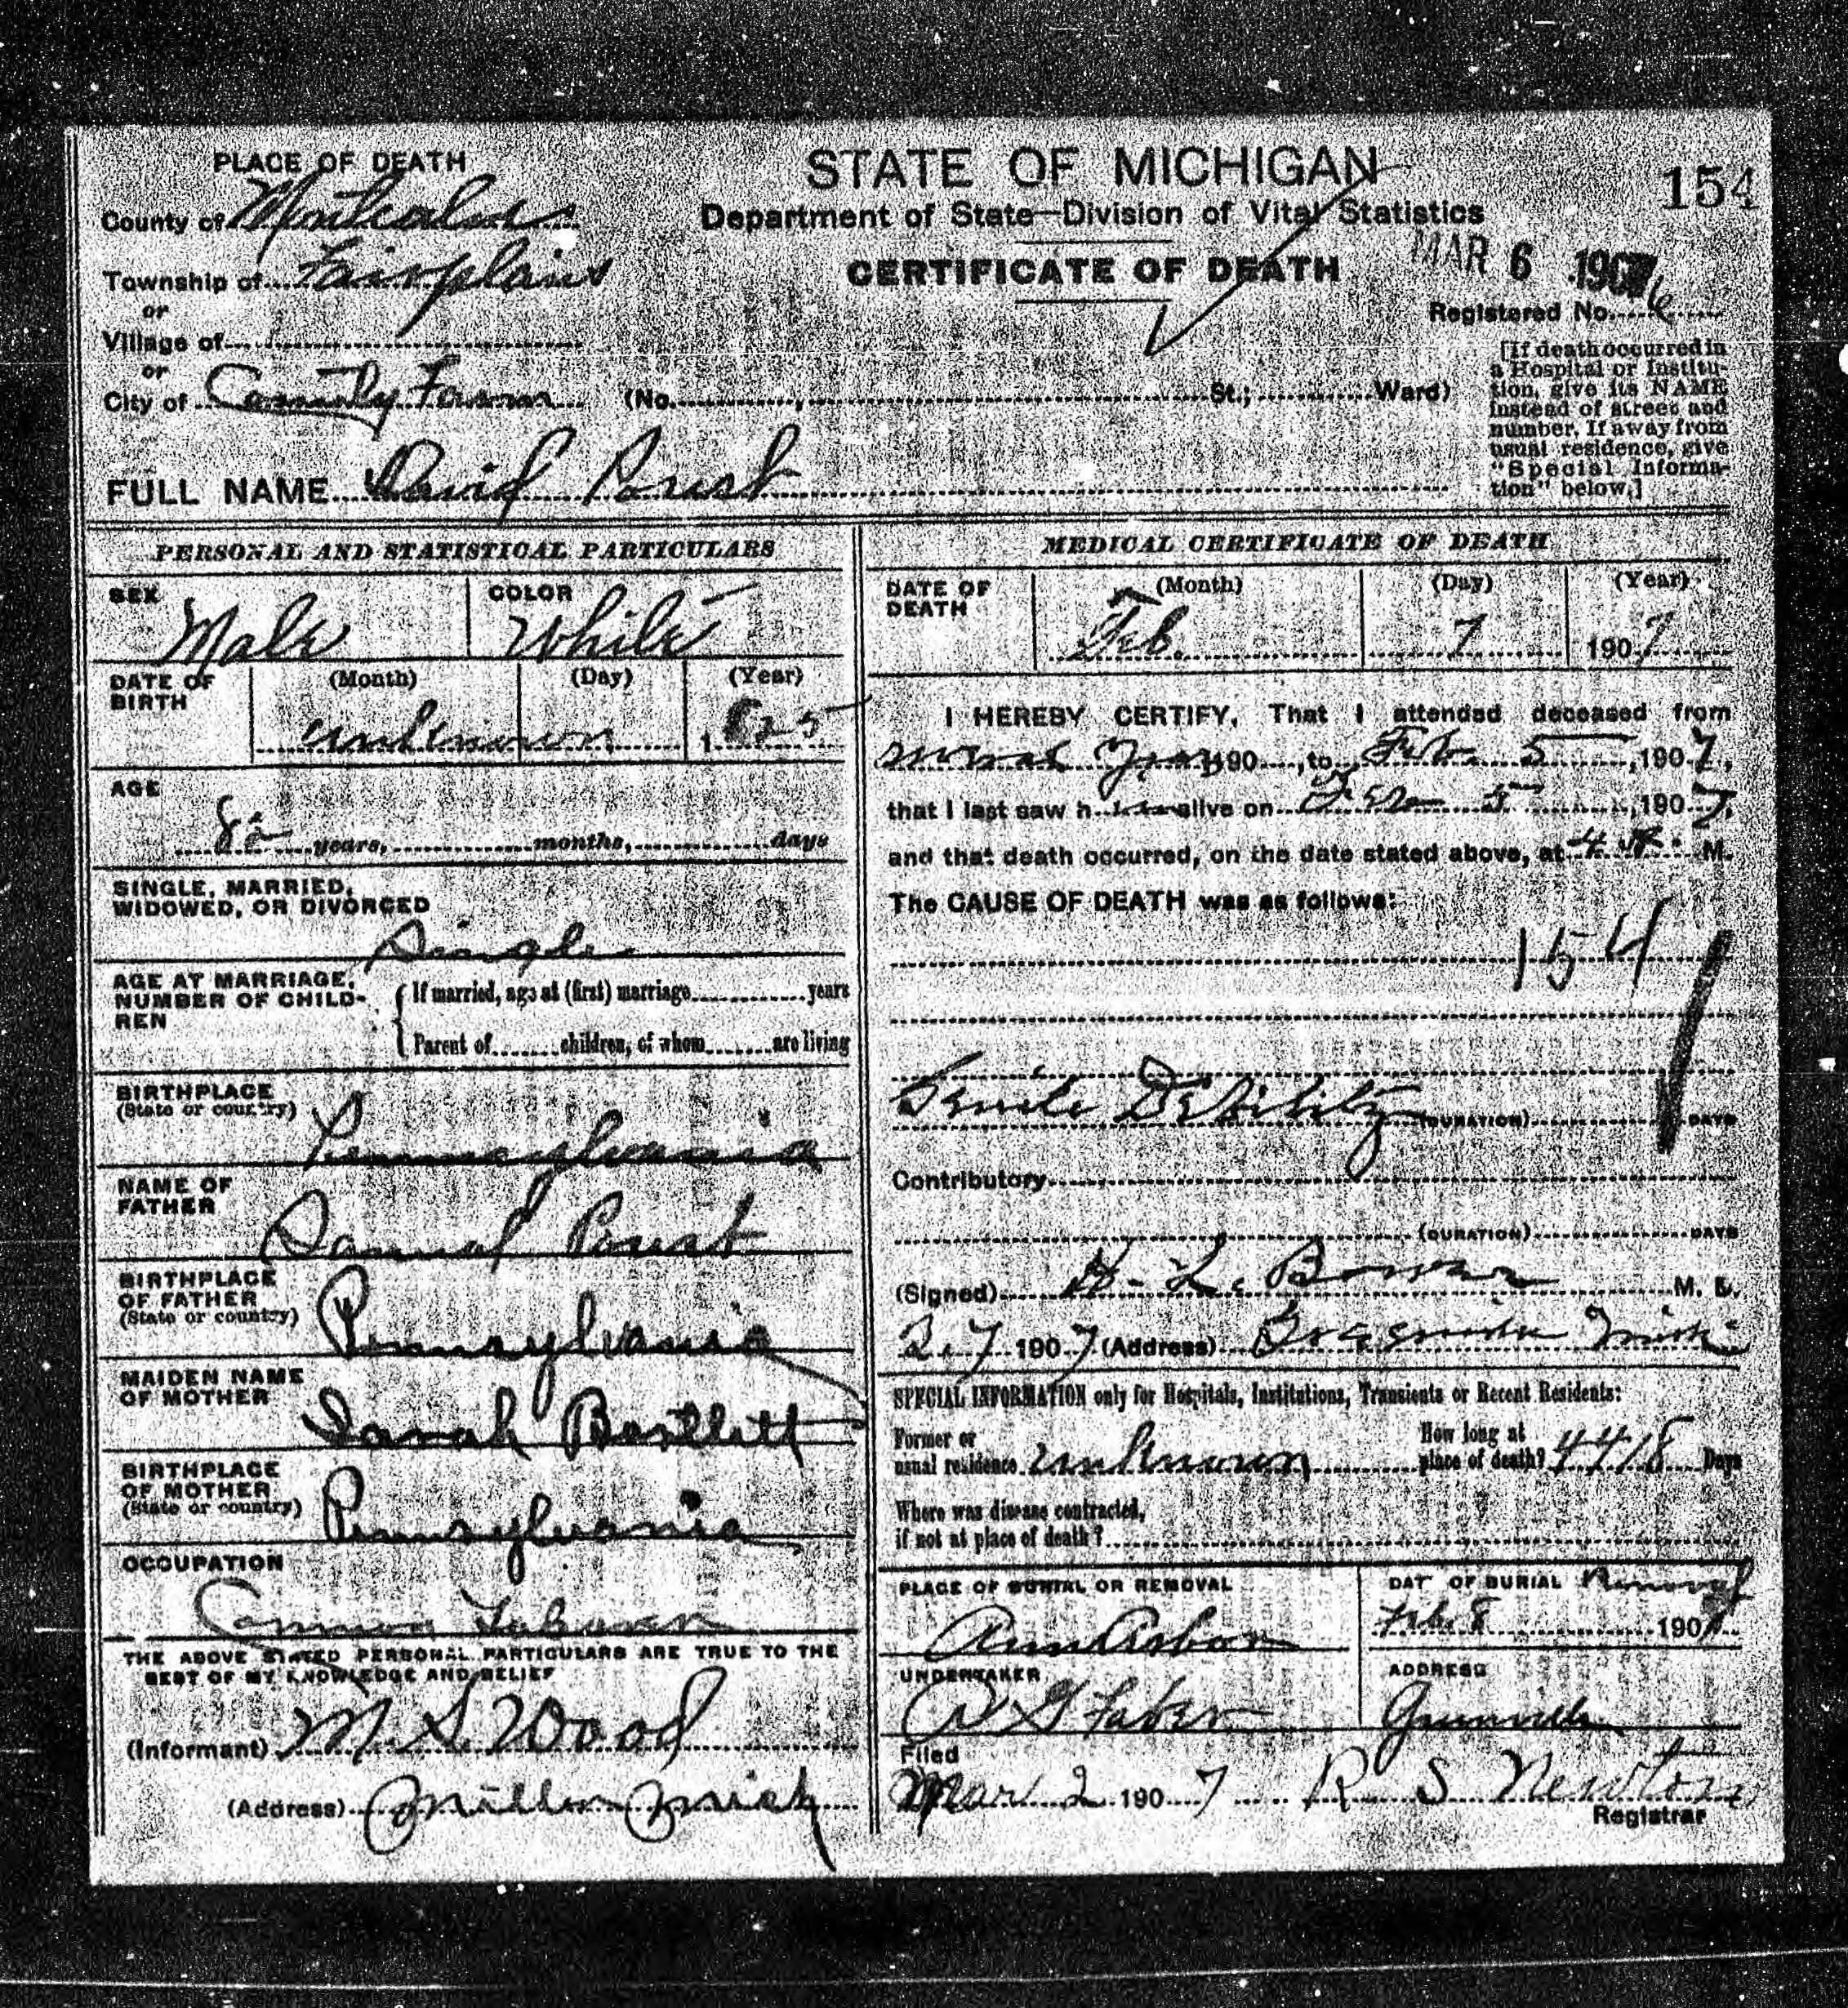 PLACE OF DEATH
County of Montcalm
Township of Fairplains
or
Village of
or
City of County Farm (No. , St.; Ward)
STATE OF MICHIGAN
Department of State—Division of Vital Statistics
CERTIFICATE OF DEATH
154
MAR 6 1907
Registered No. 6
[If death occurred in
a Hospital or Institu-
tion, give its NAME
instead of street and
number. If away from
usual residence, give
"Special Informa-
tion" below.]
FULL NAME David Poust
PERSONAL AND STATISTICAL PARTICULARS
SEX Male
COLOR White
DATE OF BIRTH
(Month) (Day) (Year)
unknown 1825
AGE
82 years, months, days
SINGLE, MARRIED,
WIDOWED, OR DIVORCED
Single
AGE AT MARRIAGE,
NUMBER OF CHILD-
REN
If married, age at (first) marriage years
Parent of children, of whom are living
BIRTHPLACE
(State or country)
Pennsylvania
NAME OF
FATHER
Samuel Poust
BIRTHPLACE
OF FATHER
(State or country)
Pennsylvania
MAIDEN NAME
OF MOTHER
Sarah Bartlett
BIRTHPLACE
OF MOTHER
(State or country)
Pennsylvania
OCCUPATION
Common Laborer
THE ABOVE STATED PERSONAL PARTICULARS ARE TRUE TO THE
BEST OF MY KNOWLEDGE AND BELIEF
(Informant) M. S. Wood
(Address) Miller Mich
MEDICAL CERTIFICATE OF DEATH
DATE OF DEATH
(Month) (Day) (Year)
Feb. 7 1907
I HEREBY CERTIFY, That I attended deceased from
190 , to Feb. 5 , 1907,
that I last saw him alive on Feb 5 , 1907,
and that death occurred, on the date stated above, at 4 M.
The CAUSE OF DEATH was as follows:
154
Senile Debility (DURATION) DAYS
Contributory
(DURATION) DAYS
(Signed) H. L. Bower M. D.
2-7 1907 (Address) Greenville Mich.
SPECIAL INFORMATION only for Hospitals, Institutions, Transients or Recent Residents:
Former or
usual residence unknown
How long at
place of death? 4418 Days
Where was disease contracted,
if not at place of death?
PLACE OF BURIAL OR REMOVAL
Ann Arbor
DATE OF BURIAL Removal
Feb 8 190
UNDERTAKER
ADDRESS
Greenville
Filed
Mar 2 1907 R S Newton
Registrar